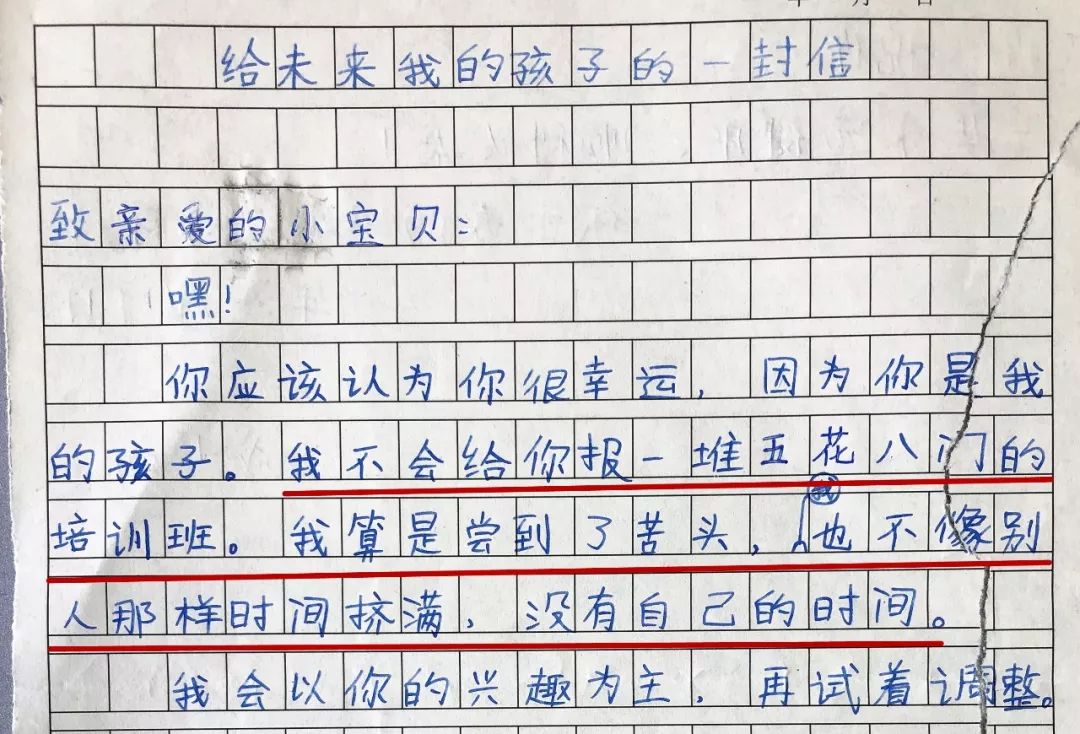 给未来我的孩子的一封信
致亲爱的小宝贝：
嘿！
你应该认为你很幸运，因为你是我
的孩子。我不会给你报一堆五花八门的
培训班。我算是尝到了苦头，我也不像别
人那样时间挤满，没有自己的时间。
我会以你的兴趣为主，再试着调整。